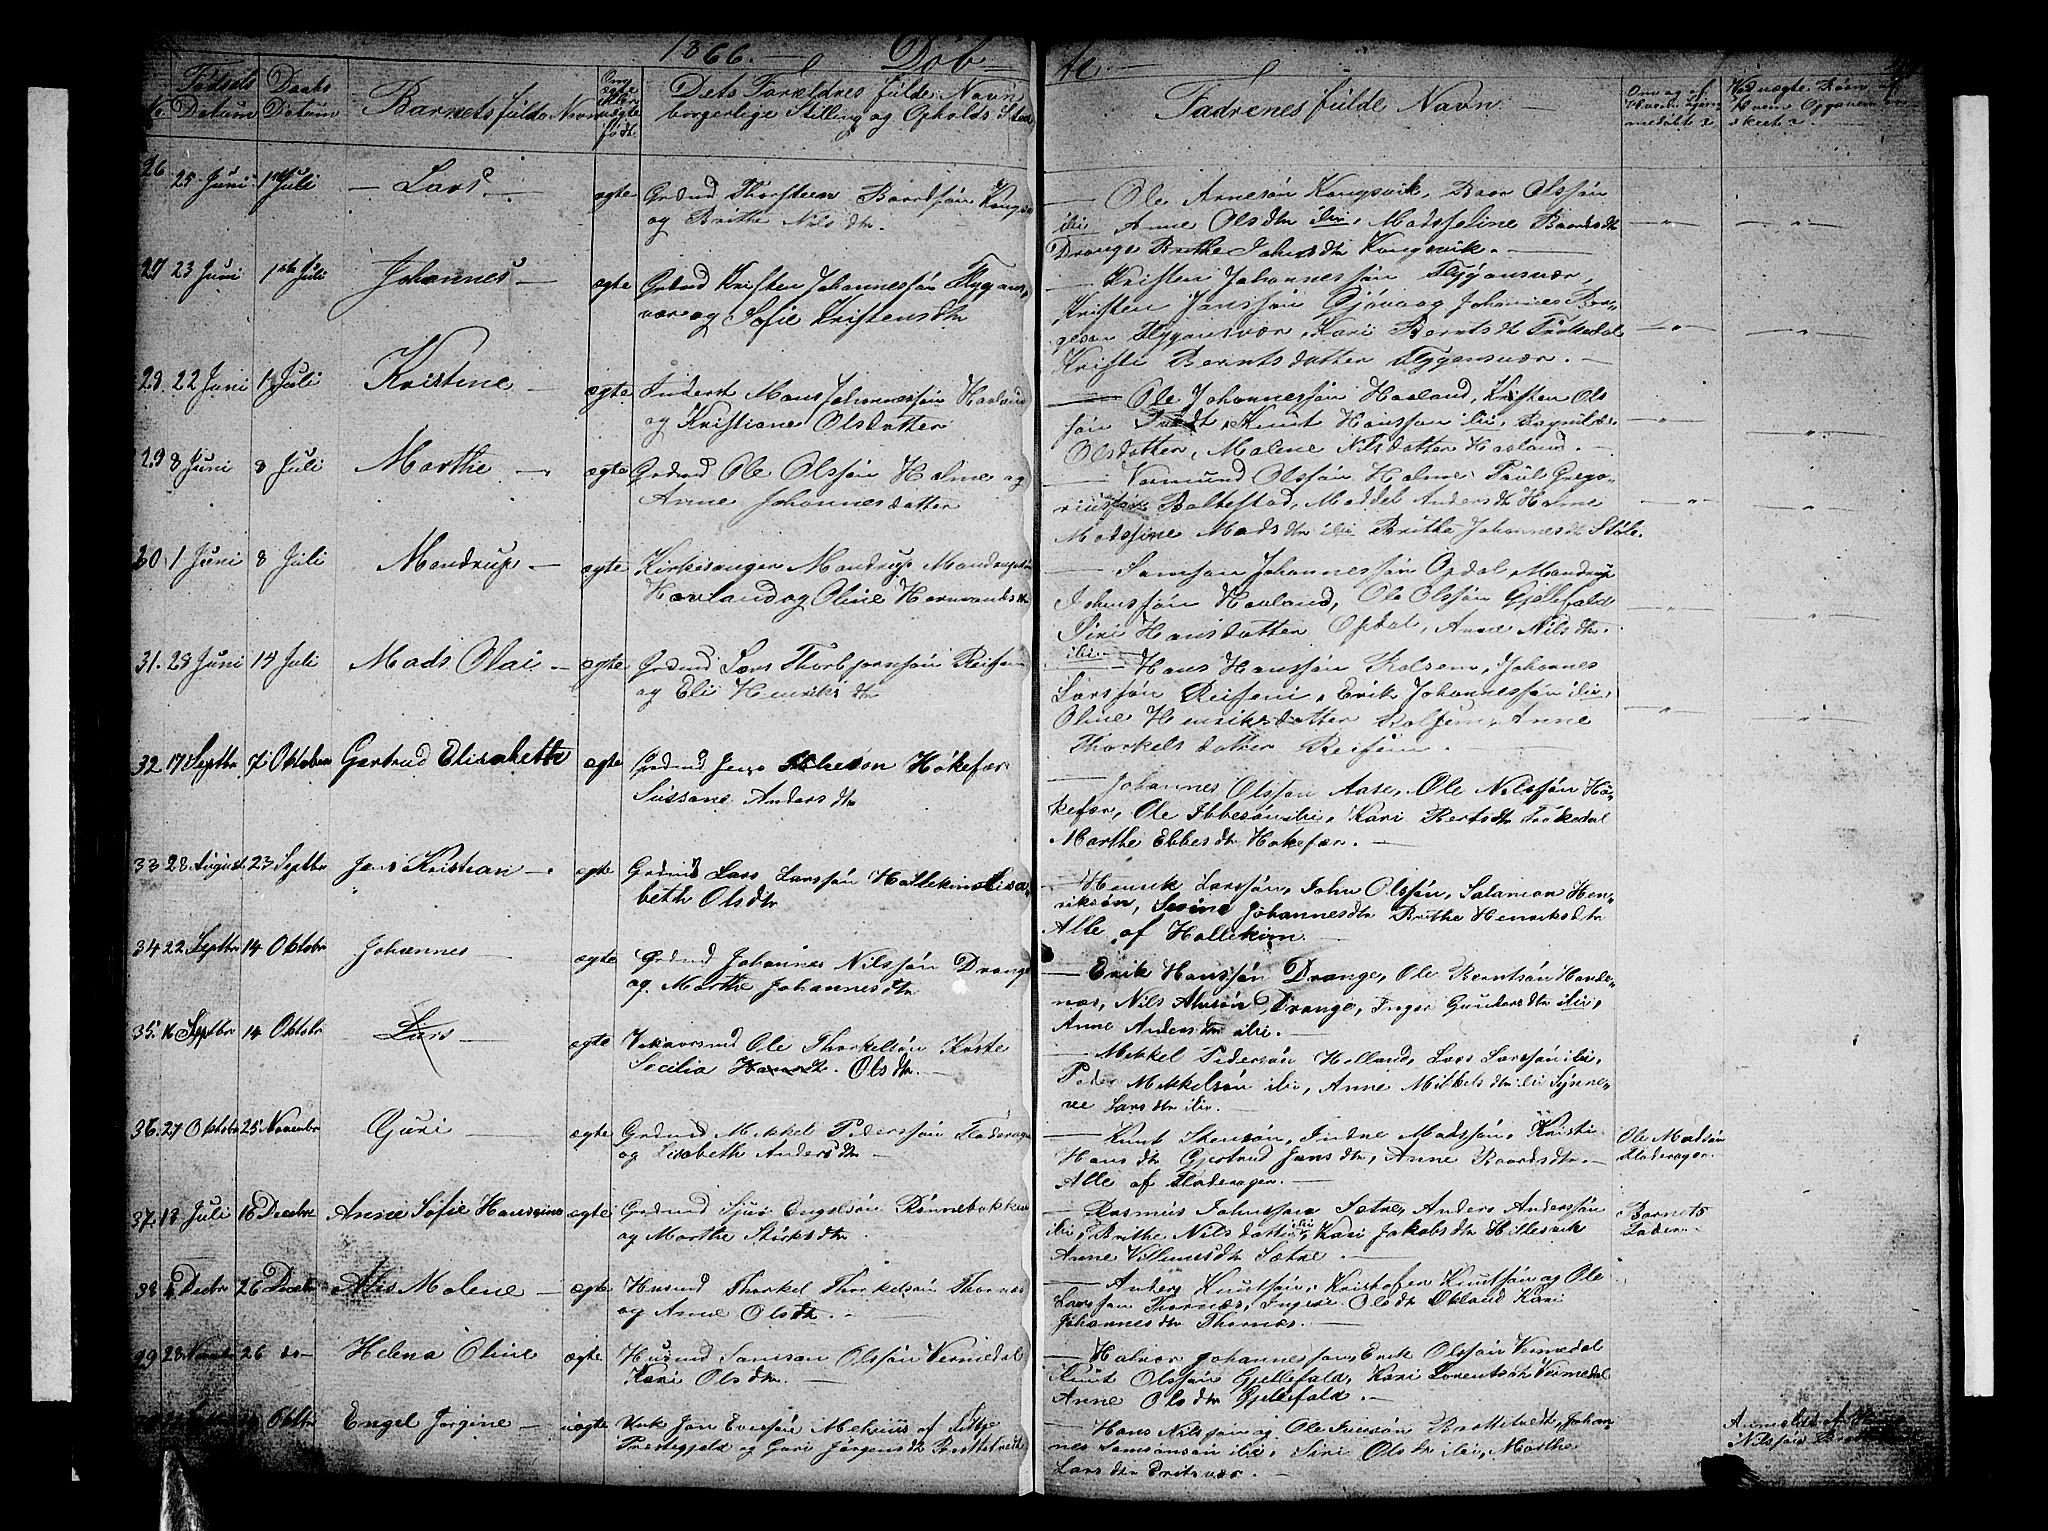 1866. — Döb — te. —
No
Fødsels Datum
Daabs Datum
Barnets fulde Navn
Om ægte eller uægte født
Dets Foreldres fulde Navn borgerlige Stilling og Opholds Sted
Fadrenes fulde Navn —
26 25 Juni 1 Juli — Lars — ægte Grdmd Thorsteen Baardsøn Kongsv
og Brithe Nilsdtr
— Ole Arnesøn Kongsvik, Baar Olssøn
ibi Anne Olsdtr ibi, Madsseline Baardsdtr
Drange Brithe Johnsdtr Kongsvik. —
27 23 Juni 1ste Juli Johannes — ægte Grdmd Kristen Johannessøn Flygans,
vær og Sofie Kristensdtr
— Kristen Johannessøn Flygansvær,
Kristen Janssøn Gjøvaag Johannes Bør-
gesøn Flygansvær, Kari Berntsdtr Trökedal
Kristi Berntsdatter Flygansvær. —
28. 22 Juni 1 Juli Kristine — ægte Inderst Hans Johannessøn Haaland
og Kristiane Olsdatter
— Ole Johannessøn Haaland, Kristen Ols
søn Tvedt, Knut Hanssøn ibi, Ragnilde
Olsdatter, Malene Nilsdatter Haaland. —
29 8 Juni 8 Juli Marthe — ægte Grdmd Ole Olssøn Holme og
Anne Johannesdatter
— Vermund Olssøn Holme Paul Grego-
riussøn Boltestad, Maddel Andersdtr Holme
Madssine Madsdtr ibi Brithe Johannesdtr Støle.
30 1 Juni 8 Juli Mandrup — ægte Kirkesanger Mandrup Mandrupsøn
Havland og Oline Hermandsdtr
— Samson Johannessøn Opdal, Mandrup
Johnssøn Havland, Ole Olssøn Gjellefald
Siri Hansdatter Opdal, Anne Nilsdtr.
ibi —
31. 28 Juni 15 Juli Mads Olai — ægte Grdmd Lars Thorbjørnsøn Reisen
og Eli Henriksdtr
— Hans Hanssøn Kolsem, Johannes
Larssøn Reiseni, Erik Johannessøn ibi,
Oline Henriksdatter Kolsem, Anne
Thorkelsdatter Reisem. —
32 17 Septbr 7 Oktober Gertrud Elisabeth ægte Grdmd Jens Ibbeson Høkefær
Sussane Andersdtr
— Johannes Olsson Aase, Ole Nilssøn Hø-
kefær, Ole Ibbesøn ibi, Kari Berntsdtr Trökedal
Marthe Ebbesdtr Høkefær. —
33 28 August 23 Septbr Jens Kristian — ægte Grdmd Lars Larssøn Hallekim Lisa-
beth Olsdtr
— Henrik Larssøn, John Olssøn, Salamon Hen-
riksøn, Severine Johannesdtr Brithe Henriksdtr
Alle af Hallekim. —
34 22 Septbr 14 Oktobr Johannes — ægte Grdmd Johannes Nilssøn Drange
og Marthe Johannesdtr
— Erik Hanssøn Drange, Ole Berntsøn Havde-
næs, Nils Drange, Inger Gundersdtr ibi,
Anne Andersdtr ibi. —
35. 16 Septbr 14 Oktobr Lars — ægte Ole Thorkelsøn Kaste
Secilia Hansdtr Olsdtr. —
— Mikkel Pedersøn Holland, Lars Larssøn ibi,
Peder Mikkelsøn ibi, Anne Mikkelsdtr ibi Synne-
ve Larsdtr ibi. —
36. 27 Oktobr 25 Novembr Guri — ægte Grdmd Mikkel Pederssøn Fladerager
og Lisabeth Andersdtr —
— Knut Stensøn, Madssøn, Kristi
Hansdtr Gjertrud Jansdtr, Anne Baardsdtr —
Alle af Fladerager. —
Ole Madsøn
Fladerager.
37. 13 Juli 16 Decbr Anne Sofie Hansine ægte Grdmd Sjur Engelsøn Rønnebakken
og Marthe Størksdtr
— Rasmus Johnssøn Sætre, Anders Anderssøn
ibi, Brithe Nilsdatter ibi, Kari Jakobsdtr Hillesvik
Anne Villumsdtr Sætre. —
Barnets
Fader —
38 6 Decbr 26 Decbr Alis Malene — ægte Husmd Thorkel Thorkelsøn Thornæs
og Anne Olsdtr. —
— Anders Knutsøn, Kristofer Knutsøn og Ole
Larssøn Thornæs, Ingeri Olsdtr Økland Kari
Johannesdtr Thornæs. —
39 28 Novbr 26 do — Helena Oline ægte Husmd Samson Olssøn Vermedal
Kari Olsdtr. —
— Halvor Johannessøn, Erik Olssøn Vermedal
Knut Olssøn Gjellefald, Kari Lorentsdtr Vermedal
Anne Olsdtr Gjellefald. —
Oktbr Engel Jørgine — uægte Unk Jon Eversøn Mehuus af
Præstegjeld og Guri Jørgensdtr Brattetvedt
— Hans Nilssøn og Ole Brattetvedt, Johan-
nes Samsonsøn ibi, Siri Olsdtr ibi, Marthe
Larsdtr Eritsvær —
Anmeldt af
Nilssøn